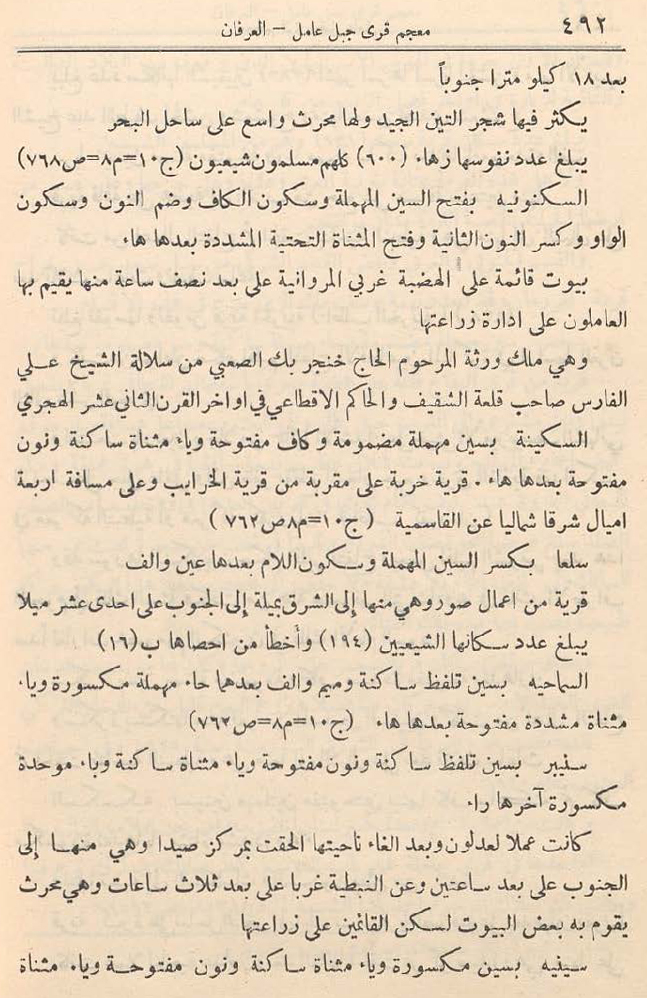 ٤٩٢ معجم قرى جبل عامل – العرفان
بعد ١٨ كيلو مترا جنوباً
يكثر فيها شجر التين الجيد ولها محرث واسع على ساحل البحر
يبلغ عدد نفوسها زهاء (٦٠٠) كلهم مسلمون شيعيون (ج١٠=م٨=ص٧٦٨)
السكنونيه بفتح السين المهملة وسكون الكاف وضم النون وسكون
الواو وكسر النون الثانية وفتح المثناة التحتية المشددة بعدها هاء
بيوت قائمة على الهضبة غربي المروانية على بعد نصف ساعة منها يقيم بها
العاملون على ادارة زراعتها
وهي ملك ورثة المرحوم الحاج خنجر بك الصعبي من سلالة الشيخ علي
الفارس صاحب قلعة الشقيف والحاكم الاقطاعي في اواخر القرن الثاني عشر الهجري
السكينة بسين مهملة مضمومة وكاف مفتوحة وياء مثناة ساكنة ونون
مفتوحة بعدها هاء . قرية خربة على مقربة من قرية الخرايب وعلى مسافة اربعة
اميال شرقا شماليا عن القاسمية (ج١٠=م٨ص٧٦٢)
سلعا بكسر السين المهملة وسكون اللام بعدها عين والف
قرية من اعمال صور وهي منها إلى الشرق بميلة إلى الجنوب على احدى عشر ميلا
يبلغ عدد سكانها الشيعيين (١٩٤) وأخطأ من احصاها ب(١٦)
السماحيه بسين تلفظ ساكنة وميم والف بعدهما حاء مهملة مكسورة وياء
مثناة مشددة مفتوحة بعدها هاء (ج١٠=م٨=ص٧٦٢)
سنيبر بسين تلفظ ساكنة ونون مفتوحة وياء مثناة ساكنة وباء موحدة
مكسورة آخرها راء
كانت عملا لعدلون وبعد الغاء ناحيتها الحقت بمركز صيدا وهي منها إلى
الجنوب على بعد ساعتين وعن النبطية غربا على بعد ثلاث ساعات وهي محرث
يقوم به بعض البيوت لسكن القائمين على زراعتها
سينيه بسين مكسورة وياء مثناة ساكنة ونون مفتوحة وياء مثناة